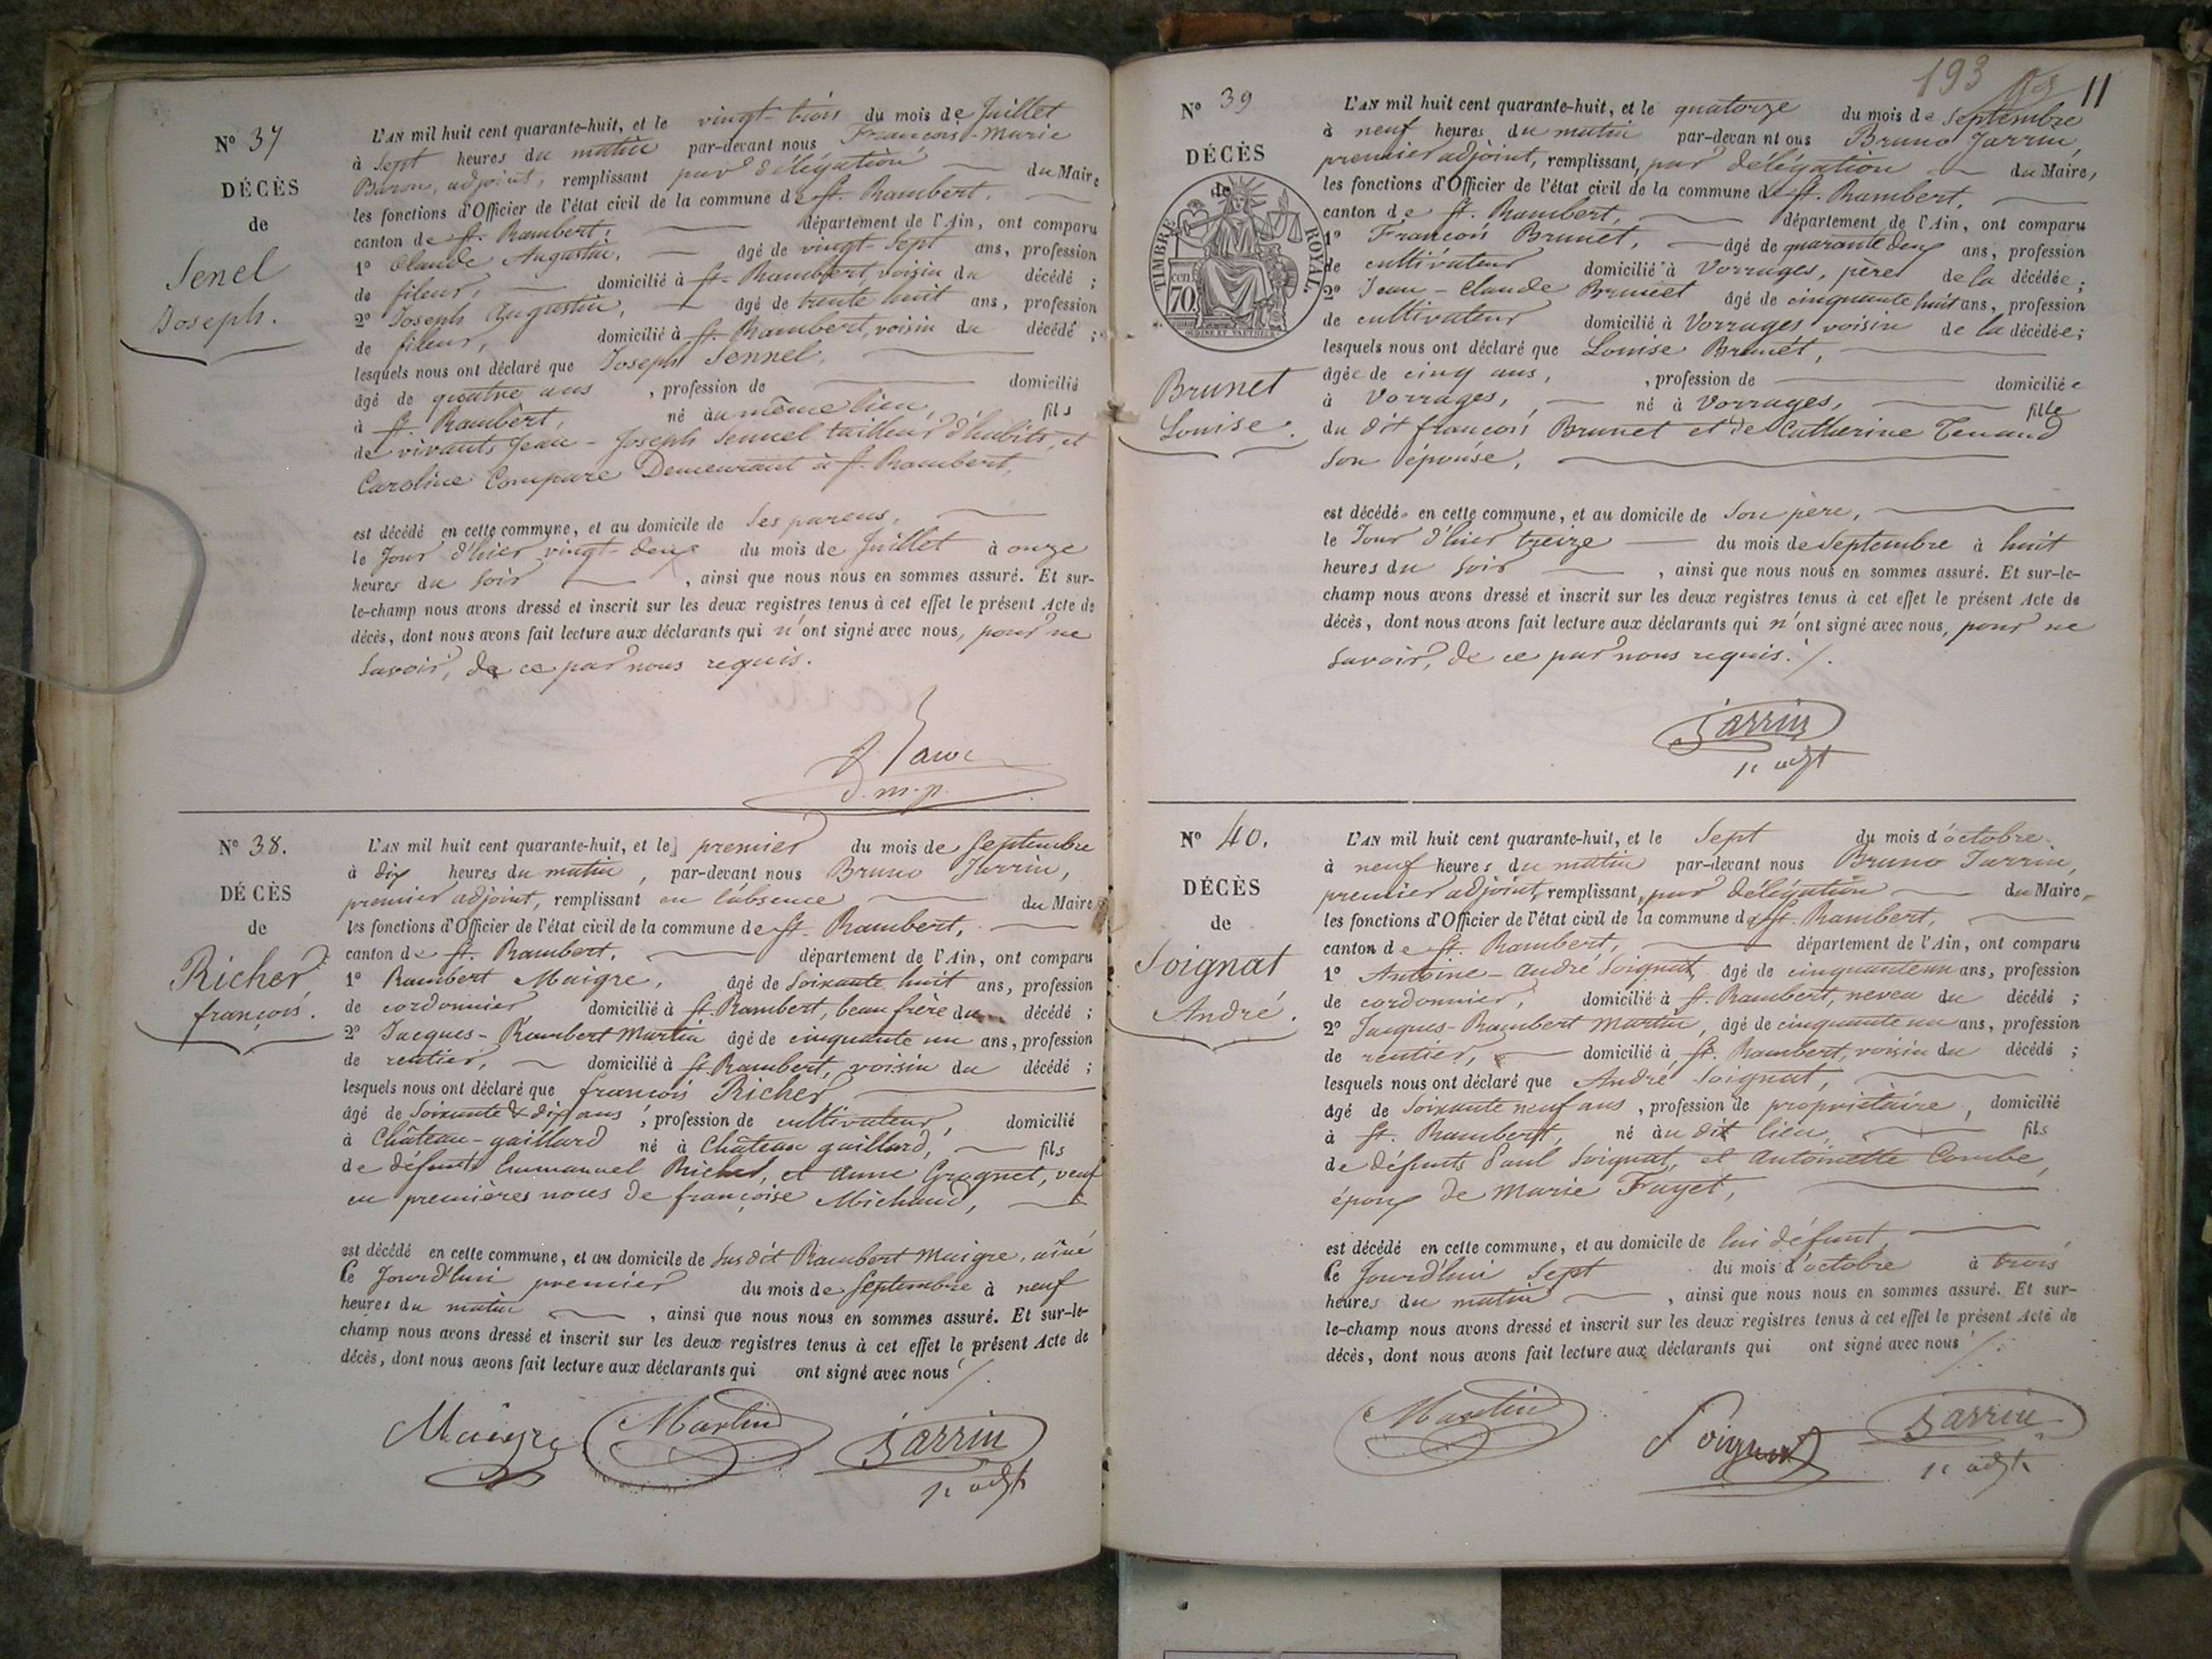 N° 37
DÉCÈS
de
Senel
Joseph.
L'AN mil huit cent quarante-huit, et le vingt-trois du mois de Juillet
à Sept heures du matin par-devant nous François-Marie
Baron, adjoint, remplissant par délégation du Maire
les fonctions d'Officier de l'état civil de la commune de St. Rambert,
canton de St. Rambert, département de l'Ain, ont comparu
1° Claude Augustin, âgé de vingt-sept ans, profession
de fileur, domicilié à St. Rambert, voisin du décédé ;
2° Joseph Augustin, âgé de trente huit ans, profession
de fileur, domicilié à St. Rambert, voisin du décédé ;
lesquels nous ont déclaré que Joseph Sennel,
âgé de quatre ans , profession de domicilié
à St. Rambert, né au même lieu, fils
de vivants Jean-Joseph Sennel tailleur d'habits, et
Caroline Compare Demeurant à St. Rambert,
est décédé en cette commune, et au domicile de Ses parens,
le Jour d'hier vingt-deux du mois de Juillet à onze
heures du Soir , ainsi que nous nous en sommes assuré. Et sur-
le-champ nous avons dressé et inscrit sur les deux registres tenus à cet effet le présent Acte de
décès, dont nous avons fait lecture aux déclarants qui n'ont signé avec nous, pour ne
Savoir, de ce par nous requis.
d. m. p.
N° 38.
DÉCÈS
de
Richer
françois.
L'AN mil huit cent quarante-huit, et le premier du mois de Septembre
à dix heures du matin, par-devant nous Bruno Jarrin,
premier adjoint, remplissant en l'absence du Maire
les fonctions d'Officier de l'état civil de la commune de St. Rambert,
canton de St. Rambert, département de l'Ain, ont comparu
1° Rambert Maigre, âgé de Soixante huit ans, profession
de cordonnier domicilié à St. Rambert, beau frère du décédé ;
2° Jacques-Rambert Martin âgé de cinquante un ans, profession
de rentier, domicilié à St. Rambert, voisin du décédé ;
lesquels nous ont déclaré que françois Richer,
âgé de Soixante & dix ans , profession de cultivateur, domicilié
à Château-gaillard né à Château gaillard, fils
de défunts Emmanuel Richer, et Anne Grognet, veuf
en premières noces de françoise Michaud,
est décédé en cette commune, et au domicile de Sus dit Rambert Maigre, aîné
Ce Jourd'hui premier du mois de Septembre à neuf
heures du matin , ainsi que nous nous en sommes assuré. Et sur-le-
champ nous avons dressé et inscrit sur les deux registres tenus à cet effet le présent Acte de
décès, dont nous avons fait lecture aux déclarants qui ont signé avec nous ./.
Maigre Martin Jarrin
1er adjt
193 11
N° 39
DÉCÈS
de
TIMBRE ROYAL.
cen
70
Brunet
Louise.
L'AN mil huit cent quarante-huit, et le quatorze du mois de Septembre
à neuf heures du matin par-devan nt ous Bruno Jarrin,
premier adjoint, remplissant, par délégation du Maire,
les fonctions d'Officier de l'état civil de la commune de St. Rambert,
canton de St. Rambert, département de l'Ain, ont comparu
1° François Brunet, âgé de quarante deux ans, profession
de cultivateur domicilié à Vorrages, père de la décédée ;
2° Jean-Claude Brunet âgé de cinquante huit ans, profession
de cultivateur domicilié à Vorrages voisin de la décédée ;
lesquels nous ont déclaré que Louise Brunet,
âgée de cinq ans, , profession de domiciliée
à Vorrages, né à Vorrages, fille
du dit françois Brunet et de Catherine Tenand
Son épouse,
est décédée en cette commune, et au domicile de Son père,
le Jour d'hier treize du mois de Septembre à huit
heures du Soir , ainsi que nous nous en sommes assuré. Et sur-le-
champ nous avons dressé et inscrit sur les deux registres tenus à cet effet le présent Acte de
décès, dont nous avons fait lecture aux déclarants qui n'ont signé avec nous, pour ne
Savoir, de ce par nous requis. ./.
Jarrin
1er adjt
N° 40.
DÉCÈS
de
Soignat
André.
L'AN mil huit cent quarante-huit, et le Sept du mois d'octobre
à neuf heures du matin par-devant nous Bruno Jarrin,
premier adjoint, remplissant, par délégation du Maire,
les fonctions d'Officier de l'état civil de la commune de St. Rambert,
canton de St. Rambert, département de l'Ain, ont comparu
1° Antoine-André Soignat, âgé de cinquante un ans, profession
de cordonnier, domicilié à St. Rambert, neveu du décédé ;
2° Jacques-Rambert Martin, âgé de cinquante un ans, profession
de rentier, domicilié à St. Rambert, voisin du décédé ;
lesquels nous ont déclaré que André Soignat,
âgé de Soixante neuf ans , profession de propriétaire, domicilié
à St. Rambert, né au dit lieu, fils
de défunts Paul Soignat, et Antoinette Combe,
époux de Marie Fayet,
est décédé en cette commune, et au domicile de lui défunt,
Ce Jourd'hui Sept du mois d'octobre à trois
heures du matin , ainsi que nous nous en sommes assuré. Et sur-
le-champ nous avons dressé et inscrit sur les deux registres tenus à cet effet le présent Acte de
décès, dont nous avons fait lecture aux déclarants qui ont signé avec nous ./.
Martin Soignat Jarrin
1er adjt